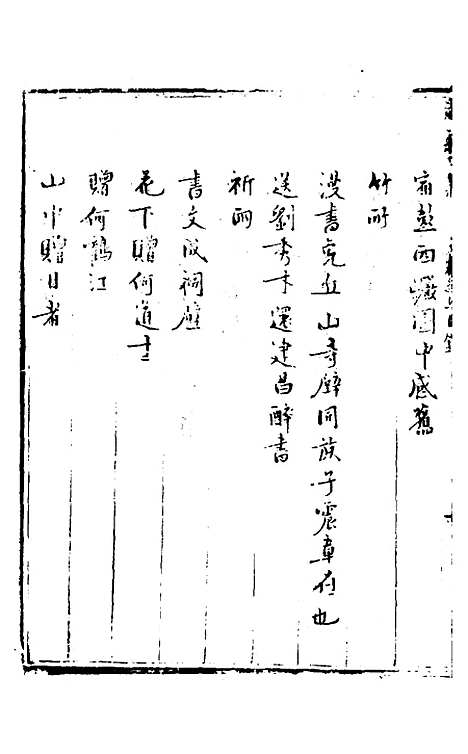 宿彭西巖園中感舊
竹所
漫書虎丘山寺壁同族子震章在也
送劉秀才還建昌醉書
祈雨
書文政祠壁
花下贈何道士
贈何鶴江
山中贈日者